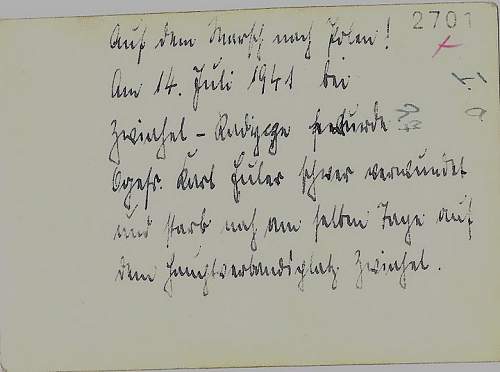 2701
Auf dem Marsch nach Polen!
Am 14. Juli 1941 bei
Zwiahel - wurde
Ogefr. Karl Euler schwer verwundet
und starb noch am selben Tage auf
dem Hauptverbandsplatz Zwiahel.